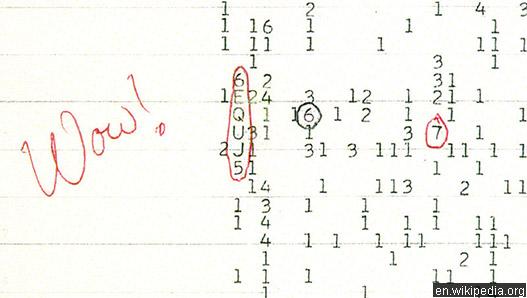 1 2 1 4 3
1 16 1 1 1
1 11 1 1 11 1
1 3 1
6 2 31
1 E24 3 12 1 21 1
Wow!
Q 1 16 1 2 1 1 1
U31 1 3 7
2 J1 31 3 111 11 1 1
51 1 1
14 1 113 2 11
1 3 1 1 1
1 4 1 1 1 11
4 1 1 1 11 111
1 1 2 1
1 1 1 11 1
en.wikipedia.org